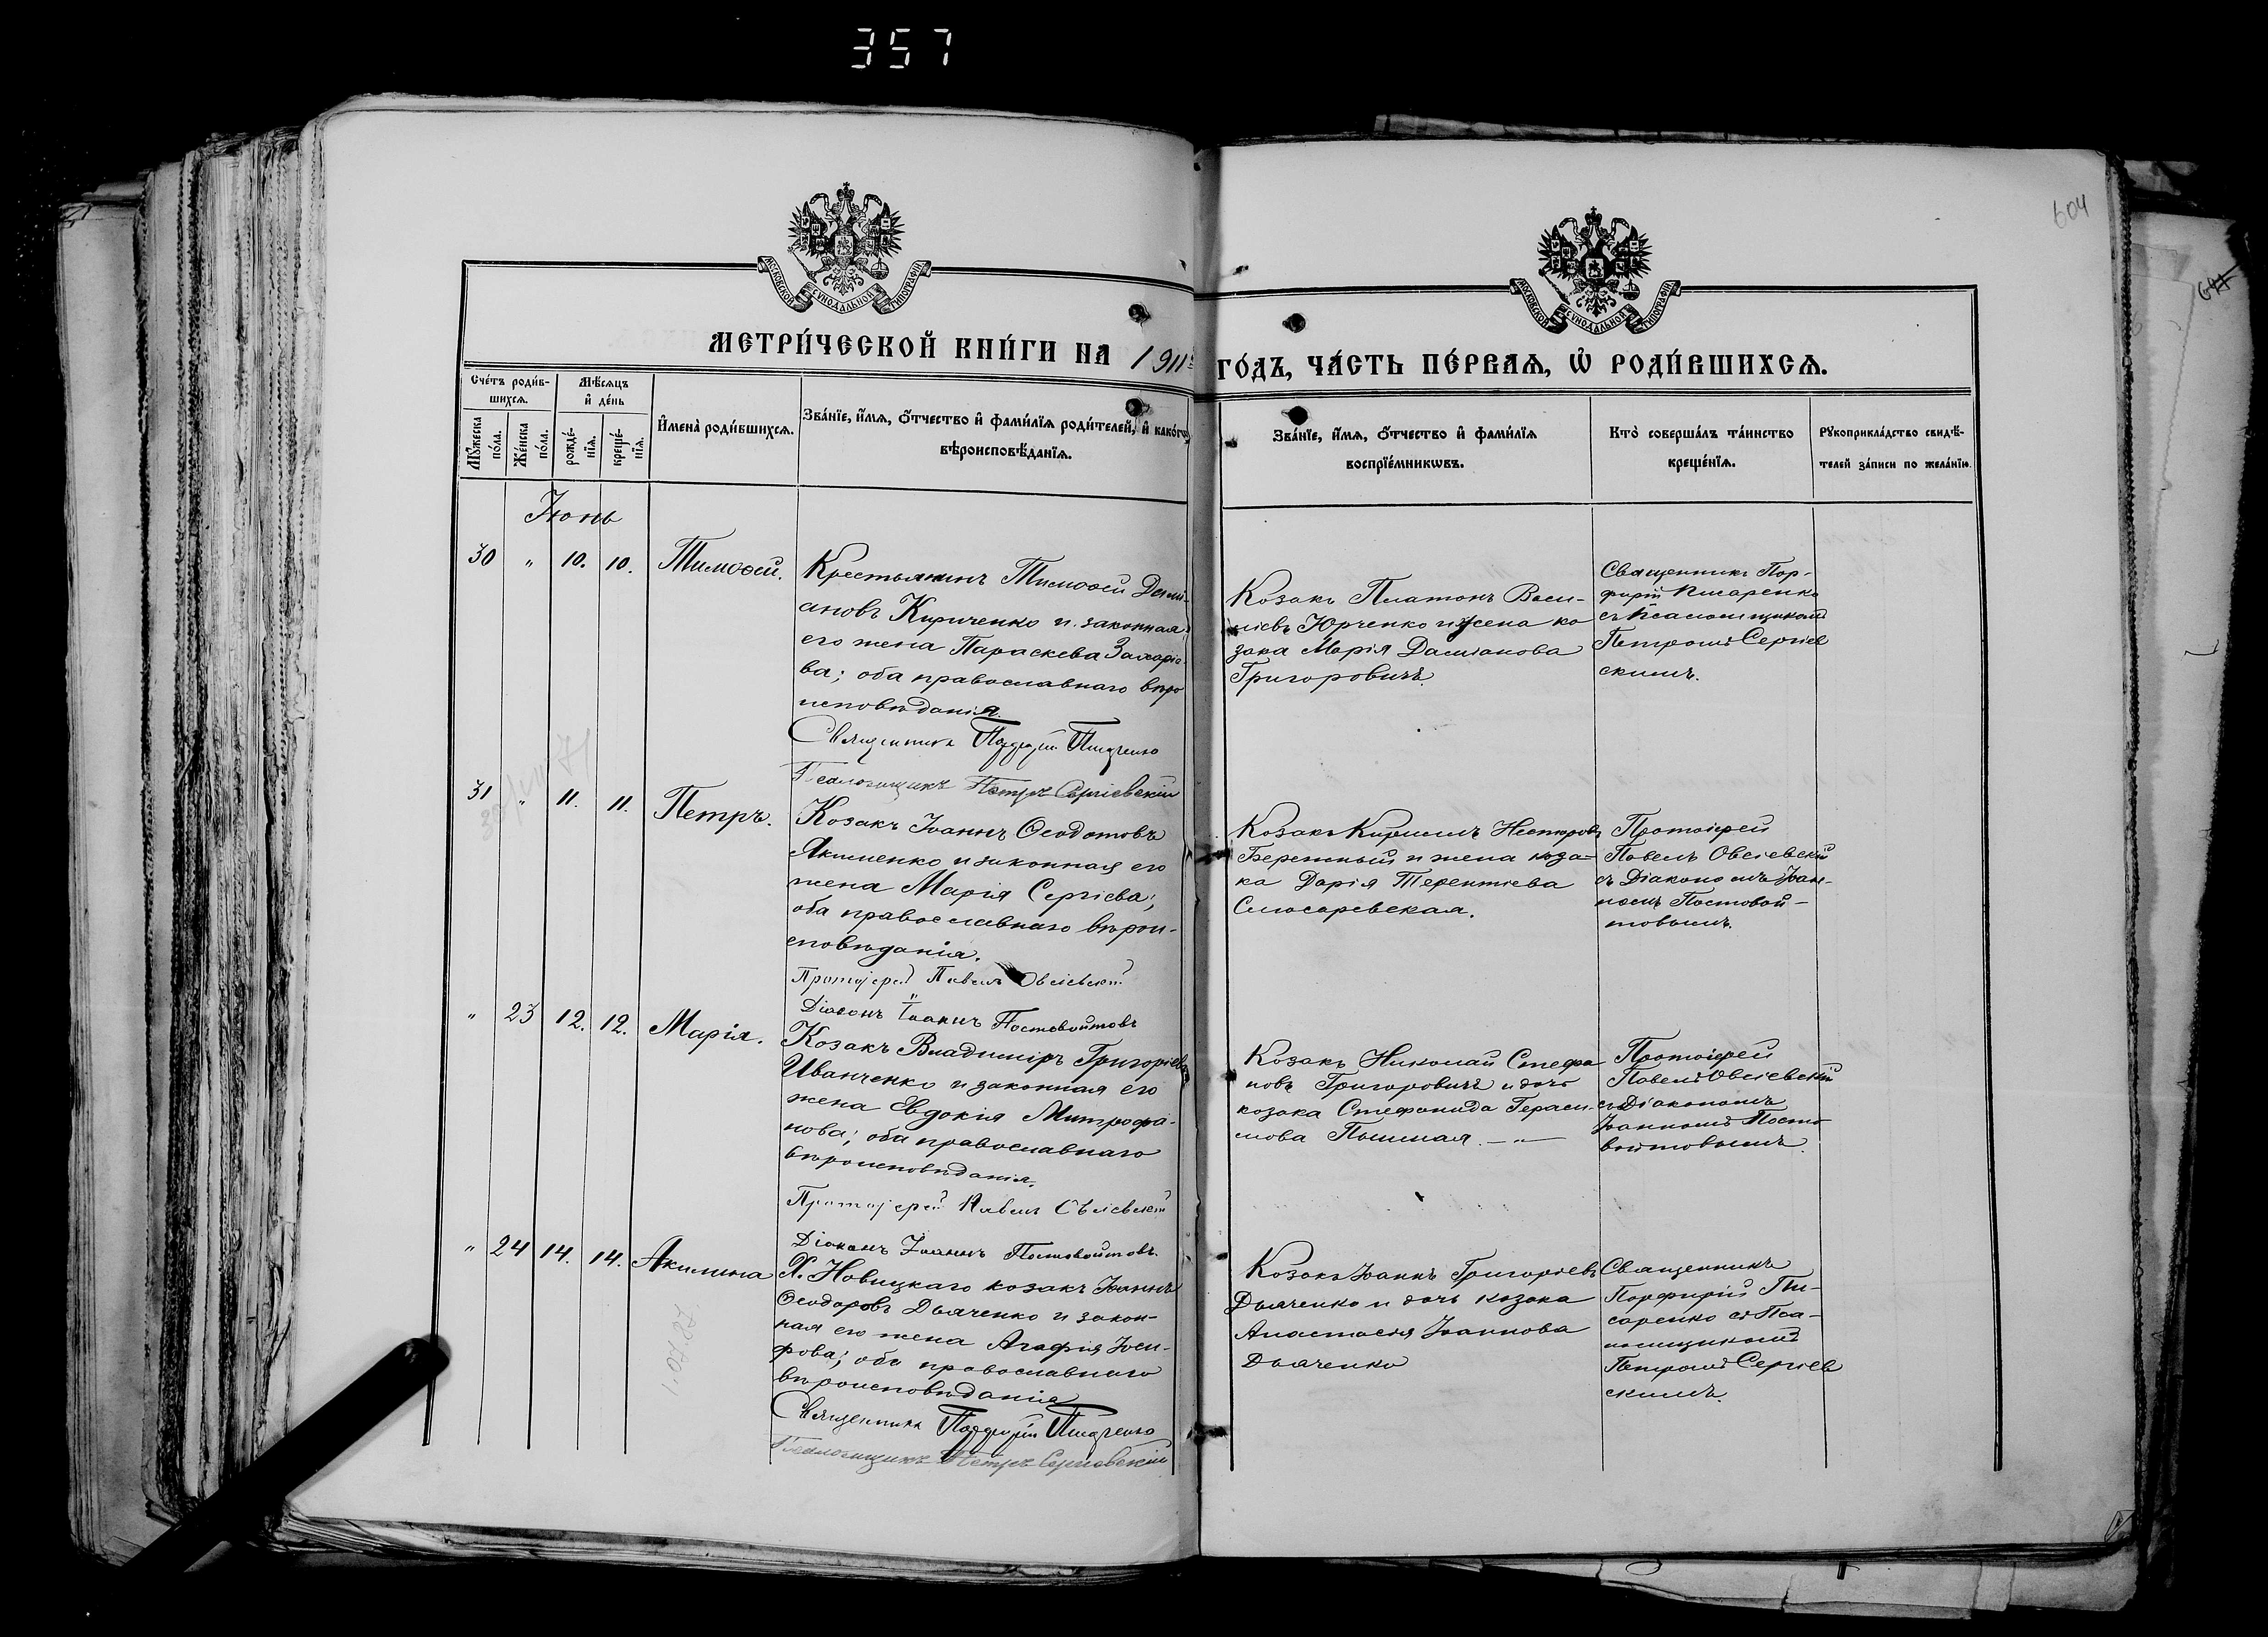 357
604
МОСКОВСКОЙ СУНОДАЛЬНОЙ ТИПОГРАФІИ
МОСКОВСКОЙ СУНОДАЛЬНОЙ ТИПОГРАФІИ
МЕТРИ́ЧЕСКОЙ КНИ́ГИ НА 1911 ГО́ДЪ, ЧА́СТЬ ПЕ́РВАѦ, Ѽ РОДИ́ВШИХСѦ.
Сче́тъ роди́в-
шихсѧ.
Мѣ́сѧцъ
и҆ де́нь
Мꙋ́жеска
по́ла.
Же́нска
по́ла.
рожде́-
нїѧ.
креще́-
нїѧ.
И҆мена̀ роди́вшихсѧ.
Зва́нїе, и҆́мѧ, ѻ҆́тчество и҆ фами́лїѧ роди́телей, и҆ како́гѡ
вѣроисповѣ́данїѧ.
Зва́нїе, и҆́мѧ, ѻ҆́тчество и҆ фами́лїѧ
воспрїе́мникѡвъ.
Кто̀ соверша́лъ та́инство
креще́нїѧ.
Рꙋкоприкла́дство свидѣ́-
телей за́писи по жела́нїю.
Іюнь
30 " 10. 10. Тимоѳей.
Крестьянинъ Тимоѳей Дами-
ановъ Кириченко и законная
его жена Параскева Захаріе
ва; оба православнаго вѣро
исповѣданія.
Священникъ Порфирій Писаренко
Псаломщикъ Петръ Сергіевскій
Козакъ Платонъ Васи-
ліевъ Юрченко и жена ко
зака Марія Даміанова
Григоровичъ.
Священникъ Пор-
фирій Писаренко
съ Псаломщикомъ
Петромъ Сергіев
скимъ.
31 " 11. 11. Петръ.
Козакъ Іоаннъ Ѳеодотовъ
Якименко и законная его
жена Марія Сергіева;
оба православнаго вѣрои-
сповѣданія.
Протоіерей Павелъ Овсіевскій
Діаконъ Іоаннъ Постовойтовъ
Козакъ Кириллъ Несторовъ
Бережный и жена коза-
ка Дарія Терентіева
Слюсаревская.
Протоіерей
Павелъ Овсіевскій
съ Діакономъ Іоан-
номъ Постовой-
товымъ.
" 23 12. 12. Марія.
Козакъ Владиміръ Григоріевъ
Иванченко и законная его
жена Евдокія Митрофа-
нова; оба православнаго
вѣроисповѣданія.
Протоіерей Павелъ Овсіевскій
Діаконъ Іоаннъ Постовойтовъ.
Козакъ Николай Стефа
новъ Григоровичъ и дочь
козака Стефанида Гераси-
мова Пышная. — " —
Протоіерей
Павелъ Овсіевскій
съ Діакономъ
Іоанномъ Посто
войтовымъ.
" 24 14. 14. Акилина
Х. Новицкаго козакъ Іоаннъ
Ѳеодоровъ Дьяченко и закон-
ная его жена Агафія Іоси-
фова; оба православнаго
вѣроисповѣданія
Священникъ Порфирій Писаренко
Псаломщикъ Петръ Сергіевскій
Козакъ Іоаннъ Григоріевъ
Дьяченко и дочь козака
Анастасія Іоаннова
Дьяченко
Священникъ
Порфирій Пи-
саренко съ Пса-
ломщикомъ
Петромъ Сергіев
скимъ.